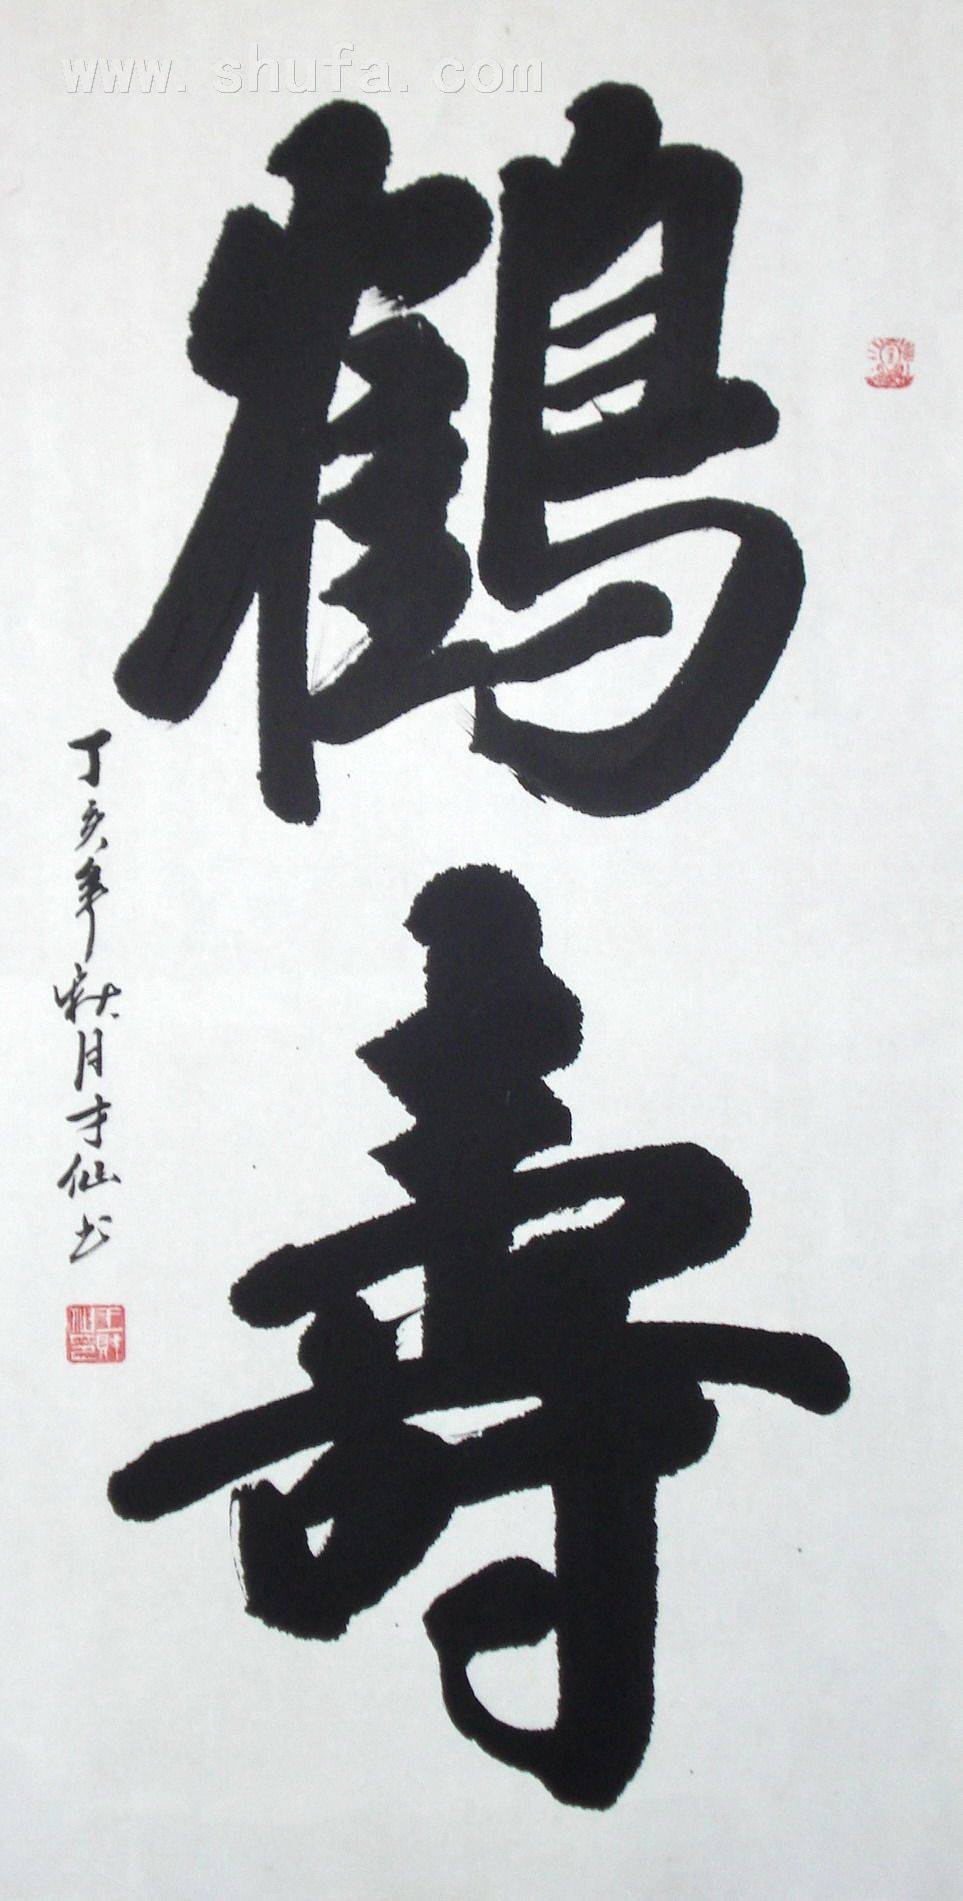 www.shufa.com
鶴壽
丁亥年秋月才仙书